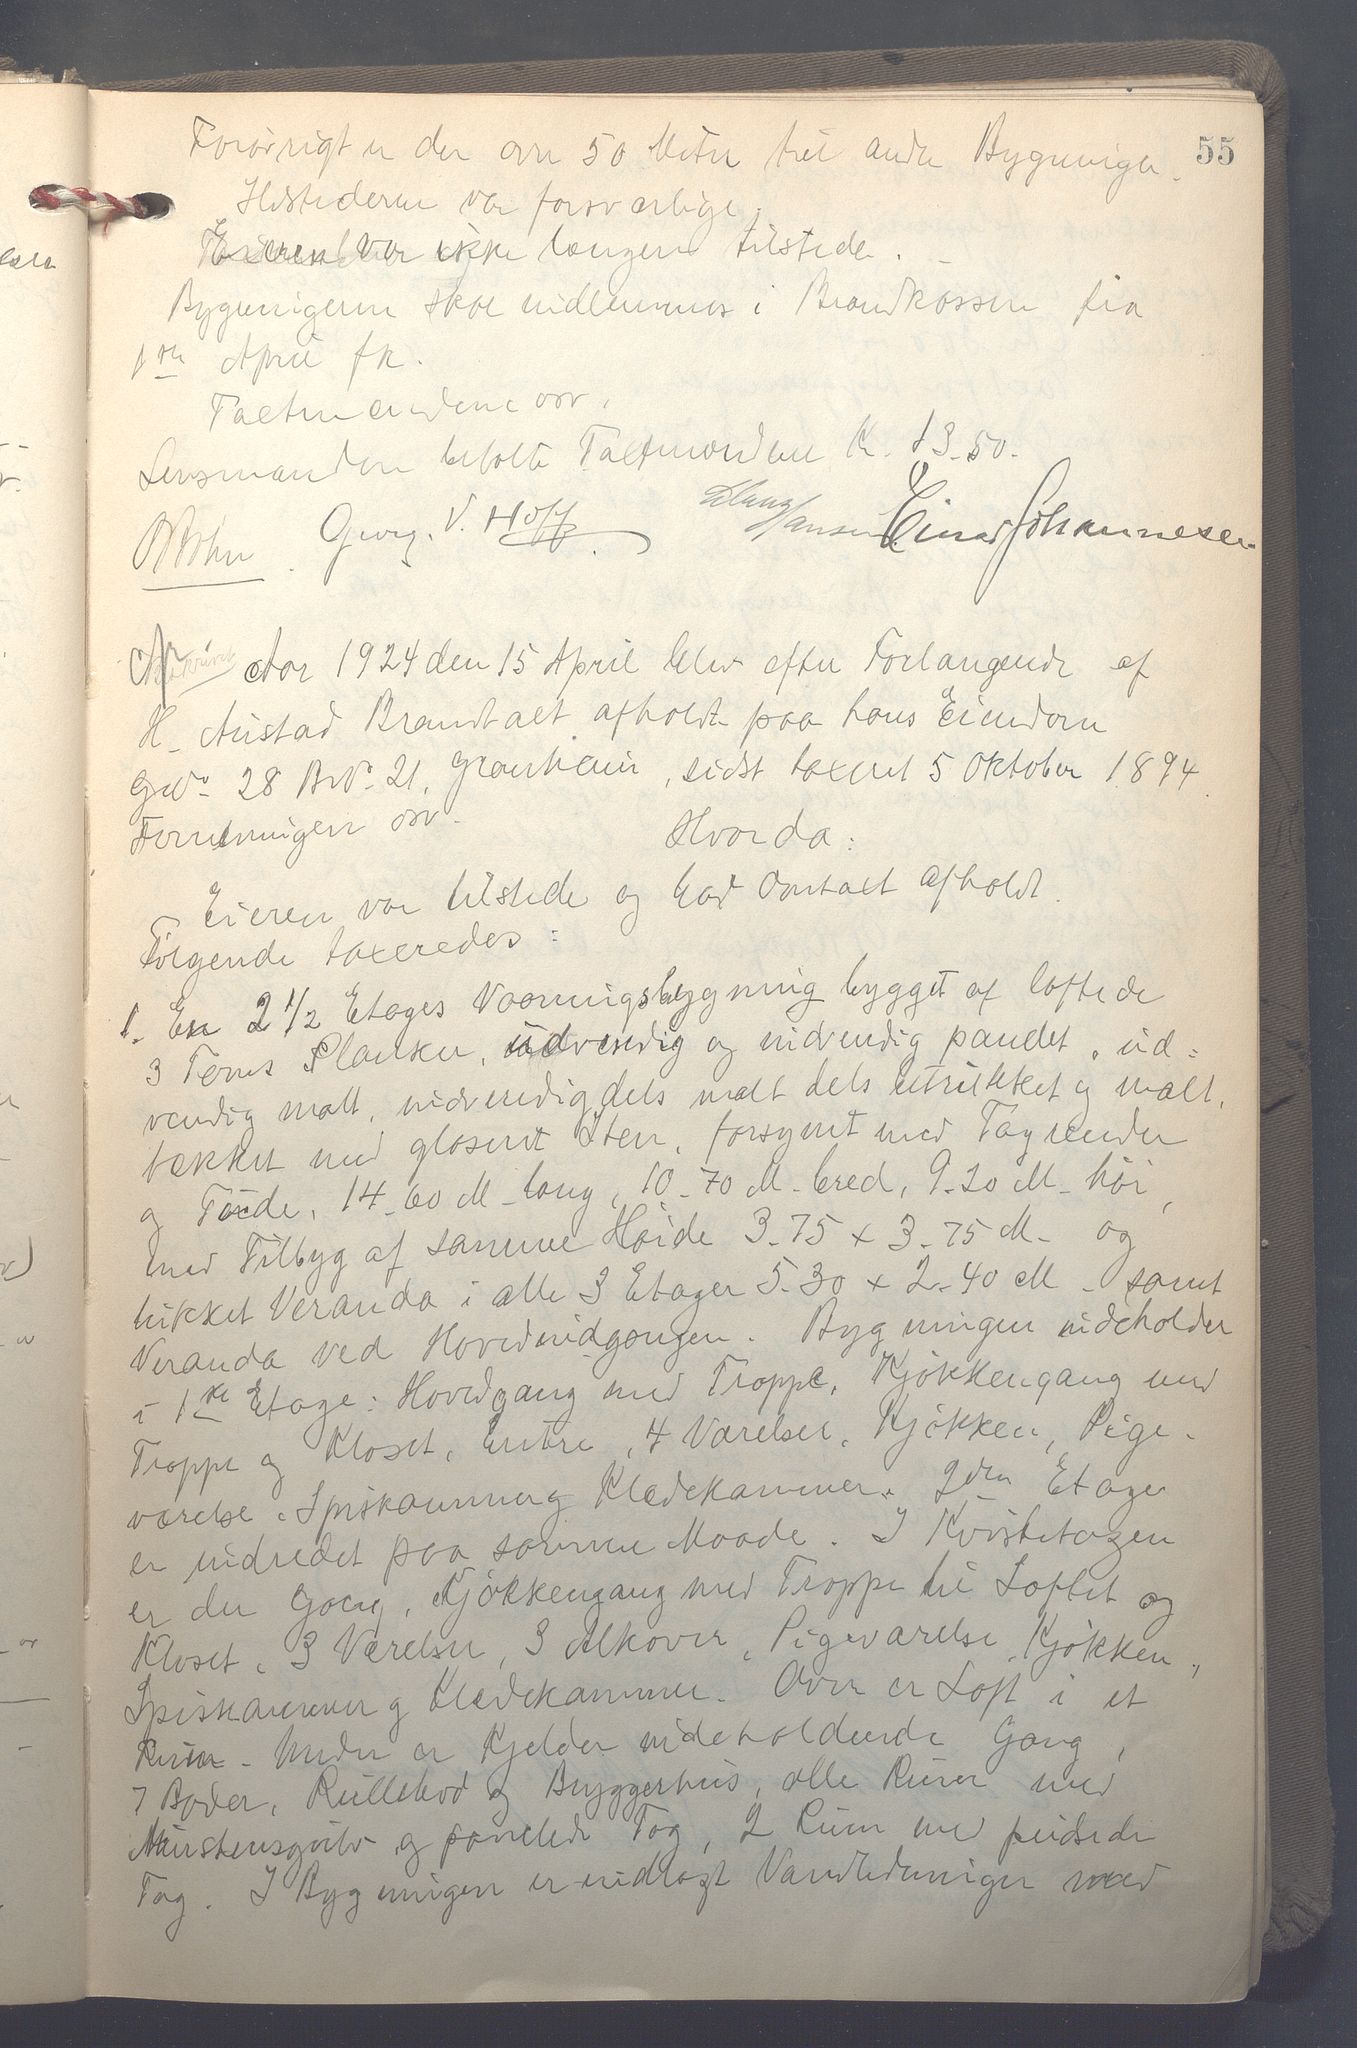 55
Forøvrigt er der over 50 Meter til andre Bygninger.
Ildstederne var forsvarlige.
Eieren var ikke længere tilstede.
Bygningerne skal indlemmes i Brandkassen fra
1ste April fk.
Taxtmændene osv.
Lensmanden betalte Taxtmændene Kr. 13.50.
Georg. V. Hoff Hansen Einar Johannesen
Afskrevet Aar 1924 den 15 April blev efter Forlangende af
H. Austad Brandtaxt afholdt paa hans Eiendom
Gno 28 Bno 21, Granheim, sidst taxeret 5 Oktober 1894.
Forretningen osv.
Hvorda:
Eieren var tilstede og bad Omtaxt afholdt.
Følgende taxeredes:
1. En 2 1/2 Etages Vaaningsbygning bygget af loftede
3 Toms Planker, udvendig og indvendig panelet, ud-
vendig malt, indvendig dels malt dels betrukket og malt,
tækket med glaseret Sten, forsynet med Tagrender
og Nedløb, 14.60 M. lang, 10.70 M. bred, 9.20 M. høi,
med Tilbyg af samme Høide 3.75 x 3.75 M. og
lukket Veranda i alle 3 Etager 5.30 x 2.40 M. samt
Veranda ved Hovedindgangen. Bygningen indeholder
i 1ste Etage: Hovedgang med Trappe, Kjøkkengang med
Trappe og Kloset, Entre, 4 Værelser, Kjøkken, Pige-
værelse, Spiskammer og Klædekammer. 2den Etage
er indredet paa samme Maade. I Kvistetagen
er der Gang, Kjøkkengang med Trappe til Loftet og
Kloset, 3 Værelser, 3 Alkover, Pigeværelse, Kjøkken,
Spiskammer og Klædekammer. Over er Loft i et
Rum. Under er Kjelder indeholdende Gang,
7 Boder, Rullebod og Bryggerhus, alle Rum med
Murstensgulv og panelede Tag, 2 Rum med pudsede
Tag. I Bygningen er indlagt Vandledninger med